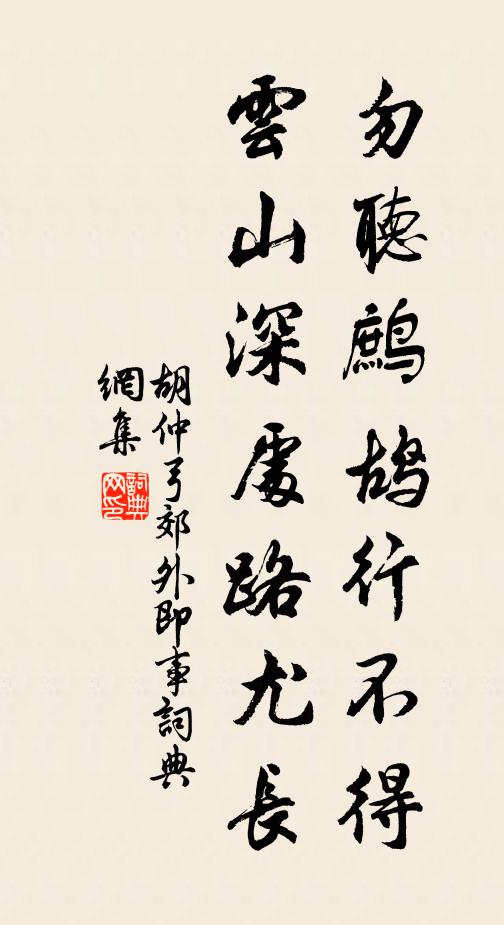 勿聽鷓鴣行不得
雲山深處路尤長
胡仲弓郊外即事詞典
網集
詞典
网印